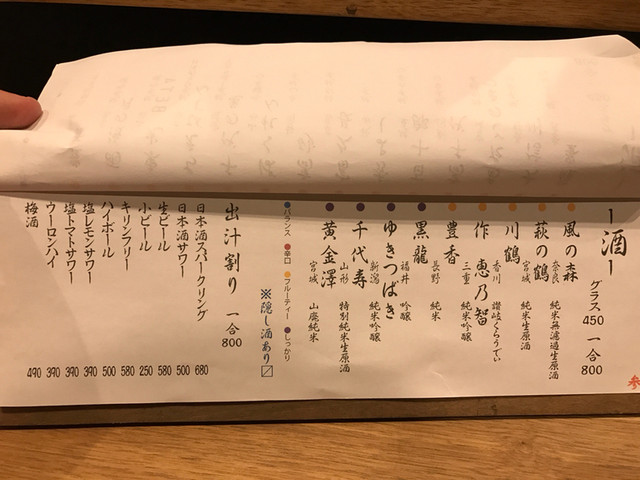 ー酒ー
グラス 450 一合 800
風の森 奈良 純米無濾過生原酒
萩の鶴 宮城 純米生原酒
川鶴 香川 讃岐くらうでぃ
作 恵乃智 三重 純米吟醸
豊香 長野 純米
黒龍 福井 吟醸
ゆきつばき 新潟 純米吟醸
千代寿 山形 特別純米生原酒
黄金澤 宮城 山廃純米
バランス 辛口 フルーティー しっかり
※隠し酒あり〼
出汁割り 一合 800
日本酒スパークリング 680
日本酒サワー 500
生ビール 580
小ビール 250
キリンフリー 580
ハイボール 500
塩レモンサワー 390
塩トマトサワー 390
ウーロンハイ 390
梅酒 490
参